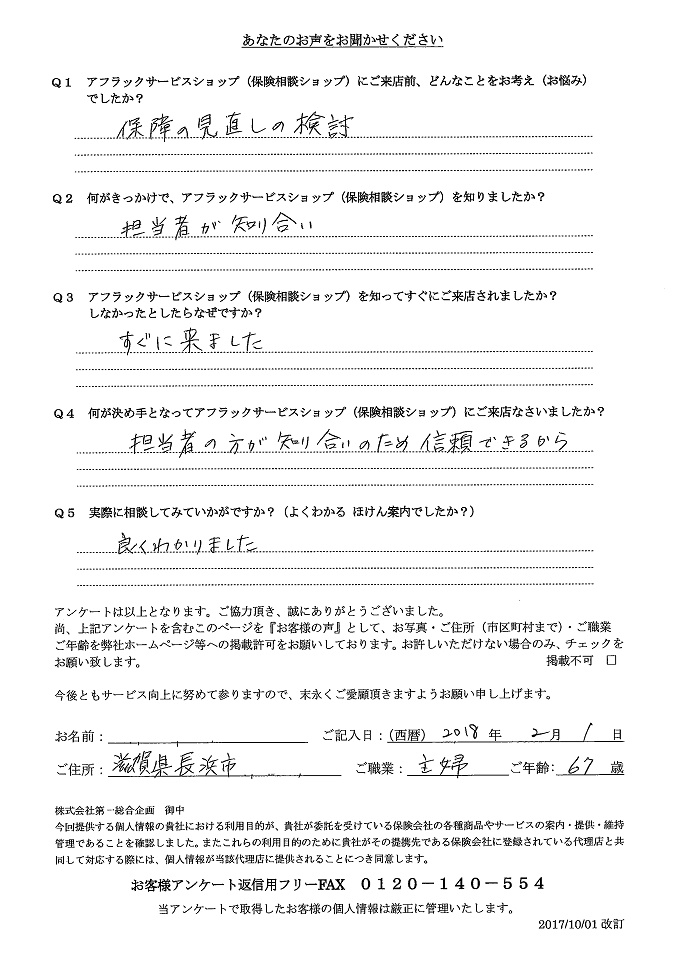 あなたのお声をお聞かせください
Q1 アフラックサービスショップ（保険相談ショップ）にご来店前、どんなことをお考え（お悩み）
でしたか？
保障の見直しの検討
Q2 何がきっかけで、アフラックサービスショップ（保険相談ショップ）を知りましたか？
担当者が知り合い
Q3 アフラックサービスショップ（保険相談ショップ）を知ってすぐにご来店されましたか？
しなかったとしたらなぜですか？
すぐに来ました
Q4 何が決め手となってアフラックサービスショップ（保険相談ショップ）にご来店なさいましたか？
担当者の方が知り合いのため信頼できるから
Q5 実際に相談してみていかがですか？（よくわかる ほけん案内でしたか？）
良くわかりました
アンケートは以上となります。ご協力頂き、誠にありがとうございました。
尚、上記アンケートを含むこのページを『お客様の声』として、お写真・ご住所（市区町村まで）・ご職業
ご年齢を弊社ホームページ等への掲載許可をお願いしております。お許しいただけない場合のみ、チェックを
お願い致します。 掲載不可 □
今後ともサービス向上に努めて参りますので、末永くご愛顧頂きますようお願い申し上げます。
お名前： ご記入日：（西暦） 2018 年 2 月 1 日
ご住所： 滋賀県長浜市 ご職業： 主婦 ご年齢： 67 歳
株式会社第一総合企画 御中
今回提供する個人情報の貴社における利用目的が、貴社が委託を受けている保険会社の各種商品やサービスの案内・提供・維持
管理であることを確認しました。またこれらの利用目的のために貴社がその提携先である保険会社に登録されている代理店と共
同して対応する際には、個人情報が当該代理店に提供されることにつき同意します。
お客様アンケート返信用フリーFAX 0120－140－554
当アンケートで取得したお客様の個人情報は厳正に管理いたします。
2017/10/01 改訂